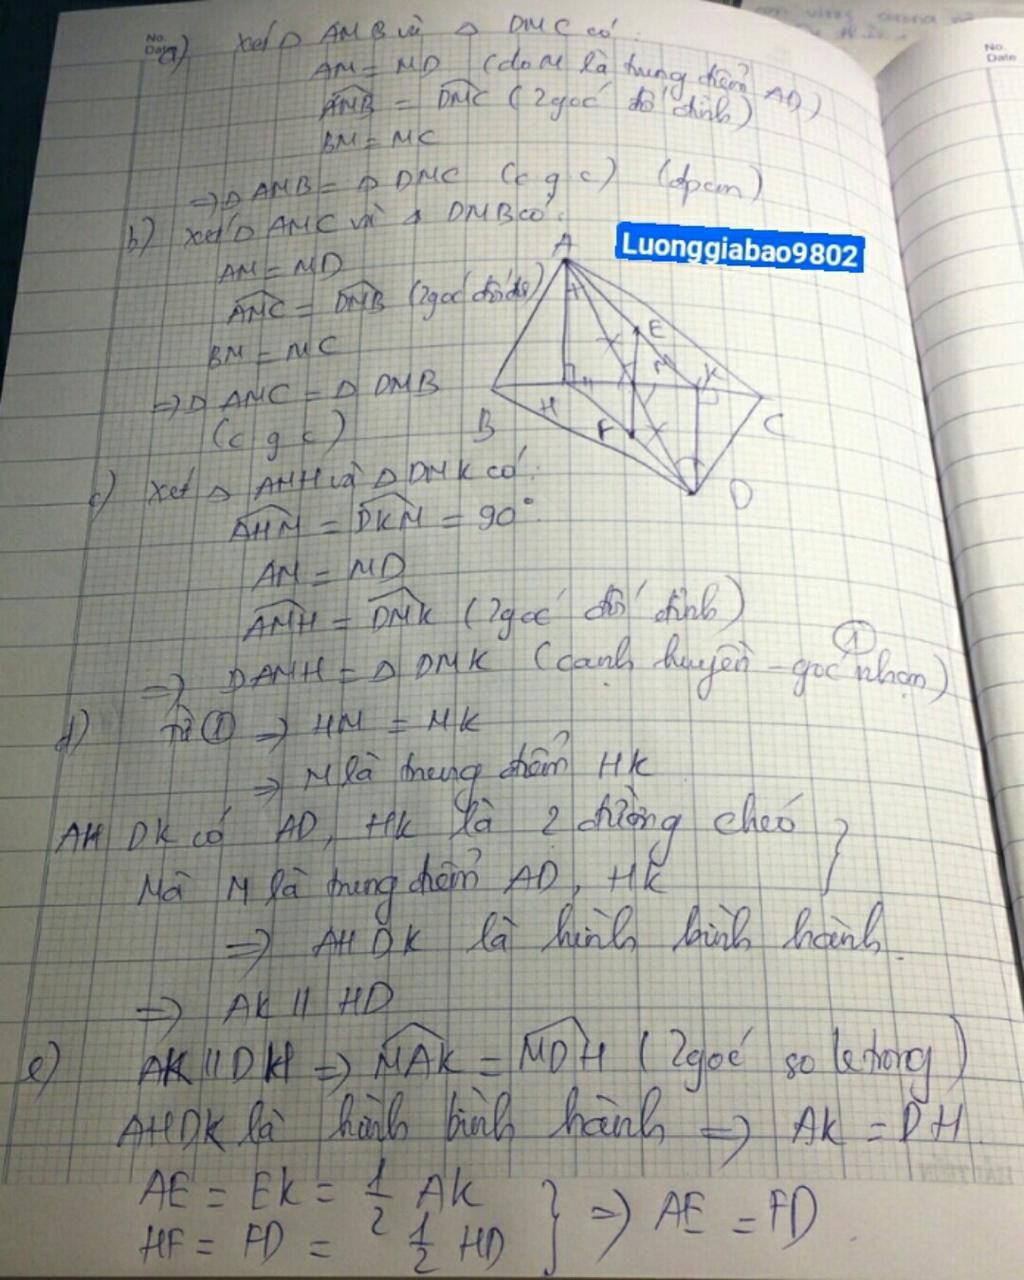 No.
Date
a) Xét Δ AMB và Δ DMC có:
AM = MD (do M là trung điểm AD)
AMB = DMC (2 góc đối đỉnh)
BM = MC
=> Δ AMB = Δ DMC (c g c) (đpcm)
b) Xét Δ AMC và Δ DMB có:
AM = MD
AMC = DMB (2 góc đối đ)
BM = MC
=> Δ AMC = Δ DMB
(c g c)
Luonggiabao9802
A
E
M
K
H
B
F
C
D
c) Xét Δ AMH và Δ DMK có:
AHM = DKM = 90°
AM = MD
AMH = DMK (2 góc đối đỉnh)
=> Δ AMH = Δ DMK (cạnh huyền - góc nhọn) ①
d) Từ ① => HM = MK
=> M là trung điểm HK
AHDK có AD, HK là 2 đường chéo
Mà M là trung điểm AD, HK
=> AHDK là hình bình hành
=> AK // HD
e) AK // DH => MAK = MDH (2 góc so le trong)
AHDK là hình bình hành => AK = DH
AE = EK = 1/2 AK
HF = FD = 1/2 HD } => AE = FD
No.
Date